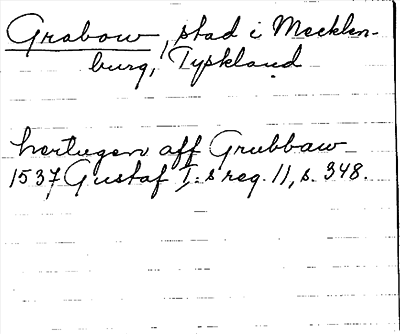 Grabow, stad i Mecklen-
burg, Tyskland
hertugen aff Grubbaw
1537, Gustaf I:s reg. 11, s. 348.